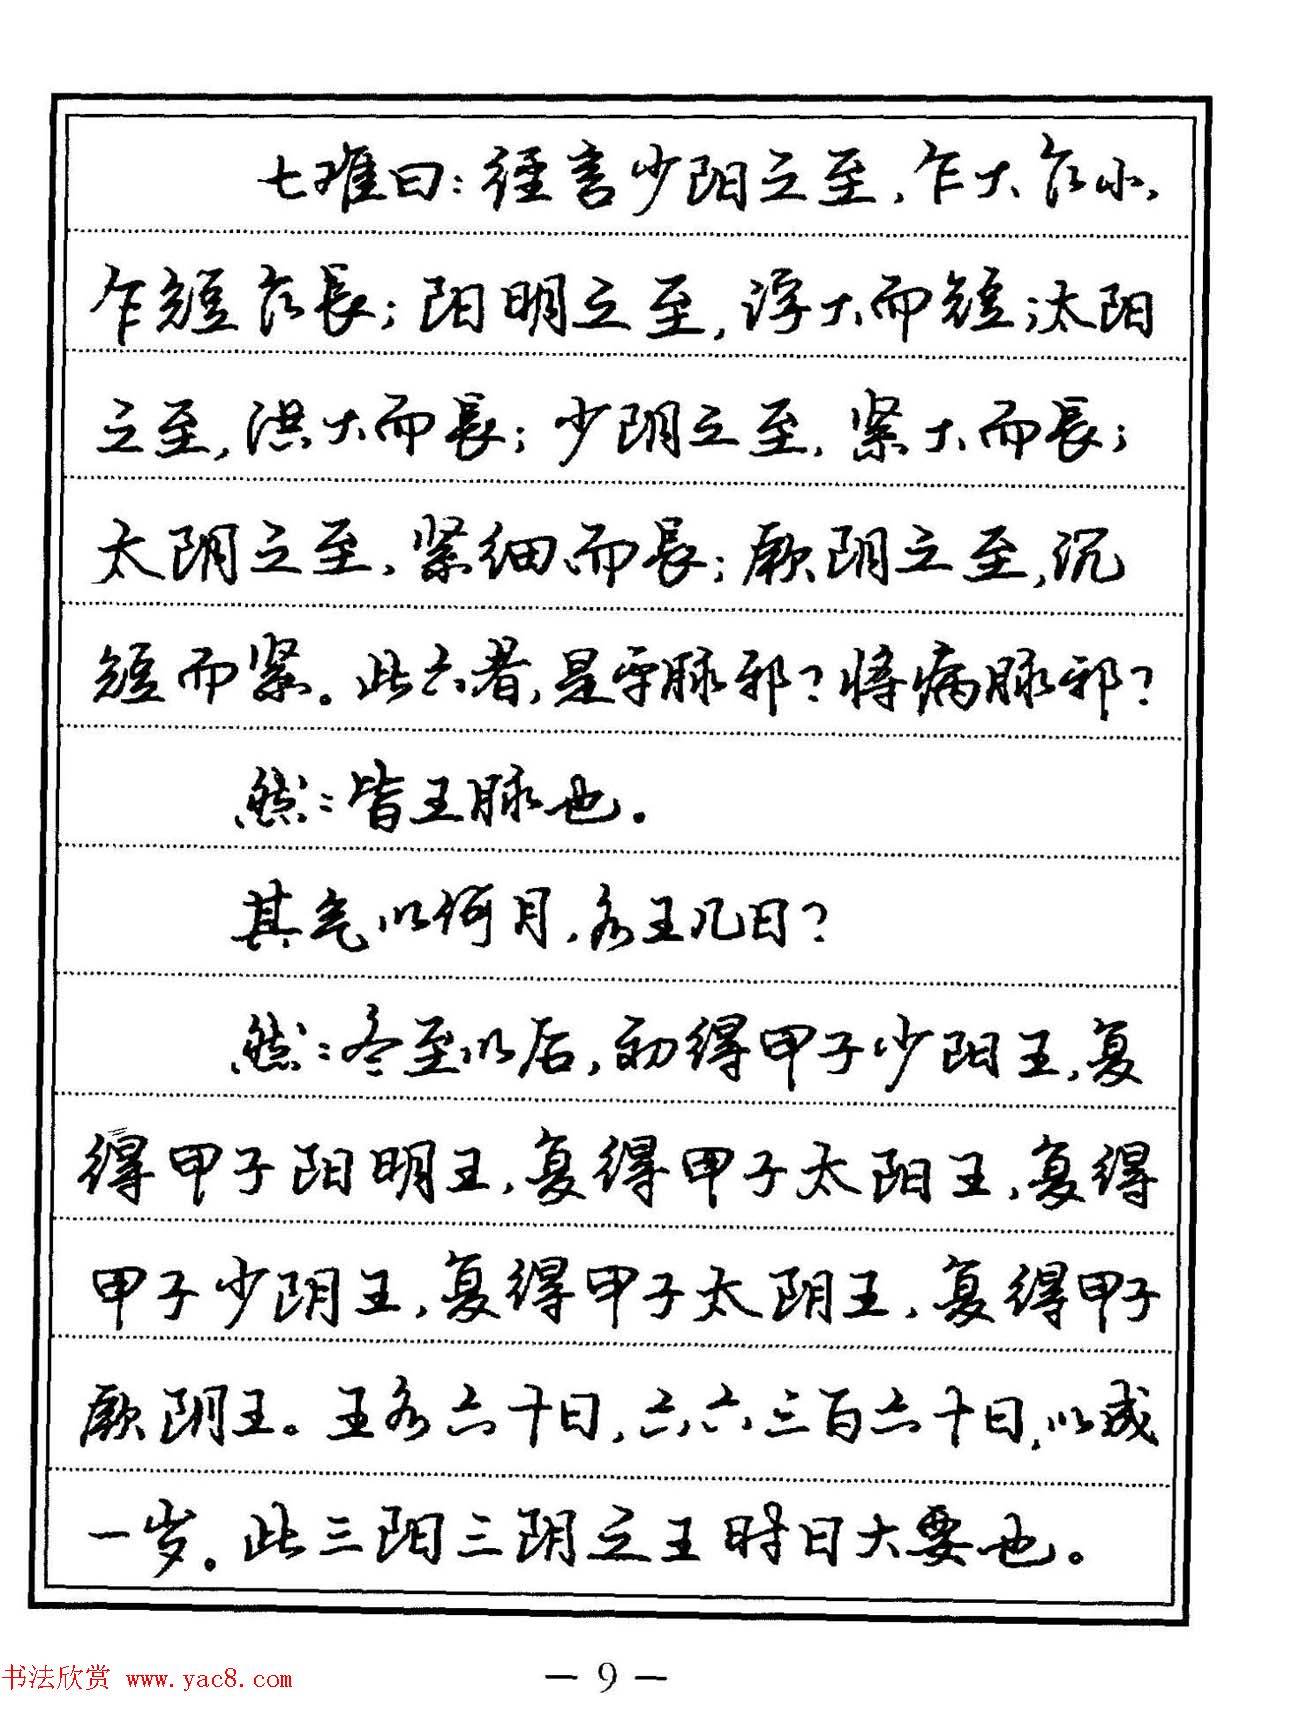 七难曰：经言少阳之至，乍大乍小，
乍短乍長；阳明之至，浮大而短；汰阳
之至，洪大而長；少阴之至，紧大而長；
太阴之至，紧细而長；厥阴之至，沉
短而紧。此六者，是平脉邪？将病脉邪？
然：皆王脉也。
其气以何月，各王几日？
然：冬至以后，初得甲子少阳王，复
得甲子阳明王，复得甲子太阳王，复得
甲子少阴王，复得甲子太阴王，复得甲子
厥阴王。王各六十日，六六三百六十日，以成
一岁。此三阳三阴之王时日大要也。
— 9 —
书法欣赏 www.yac8.com